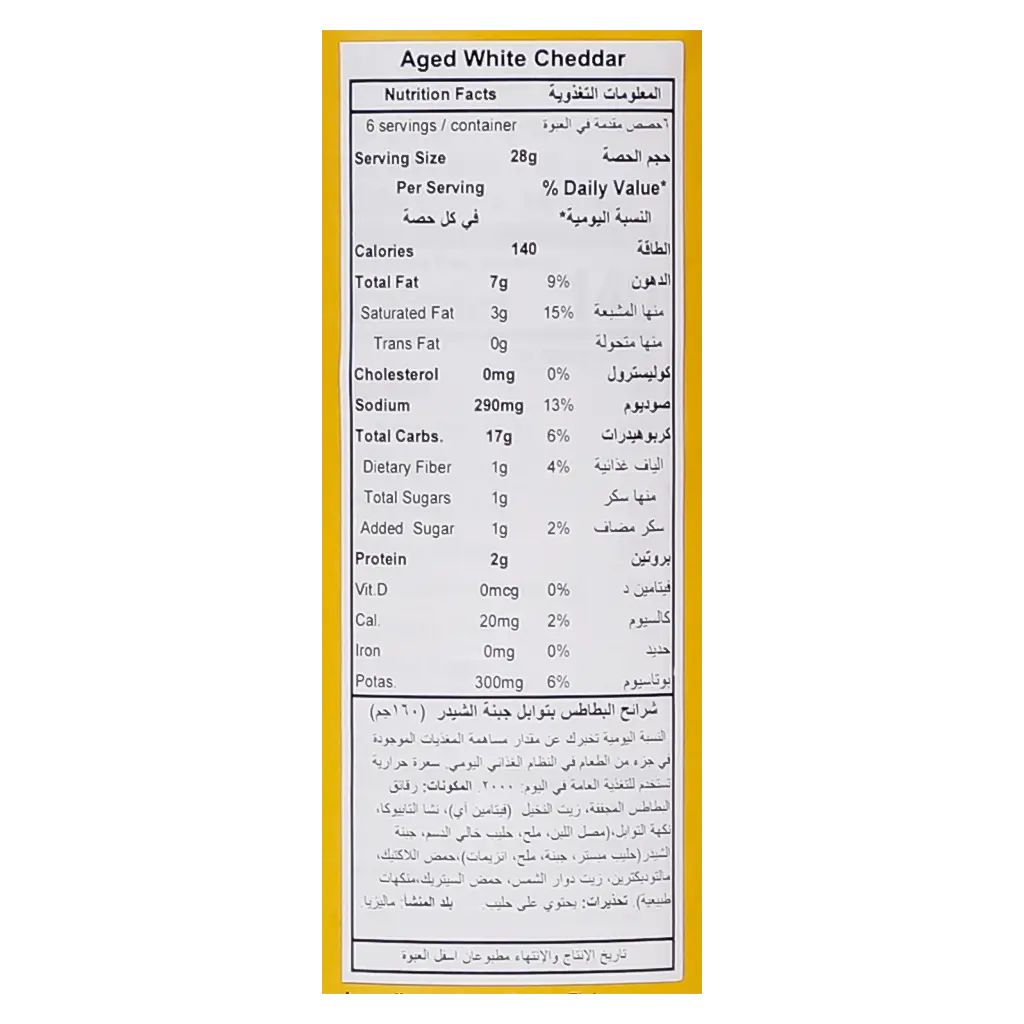 Aged White Cheddar
Nutrition Facts المعلومات التغذوية
6 servings / container ٦حصص مقدمة في العبوة
Serving Size 28g حجم الحصة
Per Serving % Daily Value*
في كل حصة النسبة اليومية*
Calories 140 الطاقة
Total Fat 7g 9% الدهون
Saturated Fat 3g 15% منها المشبعة
Trans Fat 0g منها متحولة
Cholesterol 0mg 0% كوليسترول
Sodium 290mg 13% صوديوم
Total Carbs. 17g 6% كربوهيدرات
Dietary Fiber 1g 4% الياف غذائية
Total Sugars 1g منها سكر
Added Sugar 1g 2% سكر مضاف
Protein 2g بروتين
Vit.D 0mcg 0% فيتامين د
Cal. 20mg 2% كالسيوم
Iron 0mg 0% حديد
Potas. 300mg 6% بوتاسيوم
شرائح البطاطس بتوابل جبنة الشيدر (١٦٠جم)
النسبة اليومية تخبرك عن مقدار مساهمة المغذيات الموجودة
في جزء من الطعام في النظام الغذائي اليومي. سعرة حرارية
تستخدم للتغذية العامة في اليوم: ٢٠٠٠. المكونات: رقائق
البطاطس المجففة، زيت النخيل (فيتامين أي)، نشا التابيوكا،
نكهة التوابل،(مصل اللبن، ملح، حليب خالي الدسم، جبنة
الشيدر(حليب مبستر، جبنة، ملح، انزيمات)،حمض اللاكتيك،
مالتوديكترين، زيت دوار الشمس، حمض السيتريك،منكهات
طبيعية). تحذيرات: يحتوي على حليب. بلد المنشأ: ماليزيا.
تاريخ الانتاج والانتهاء مطبوعان اسفل العبوة